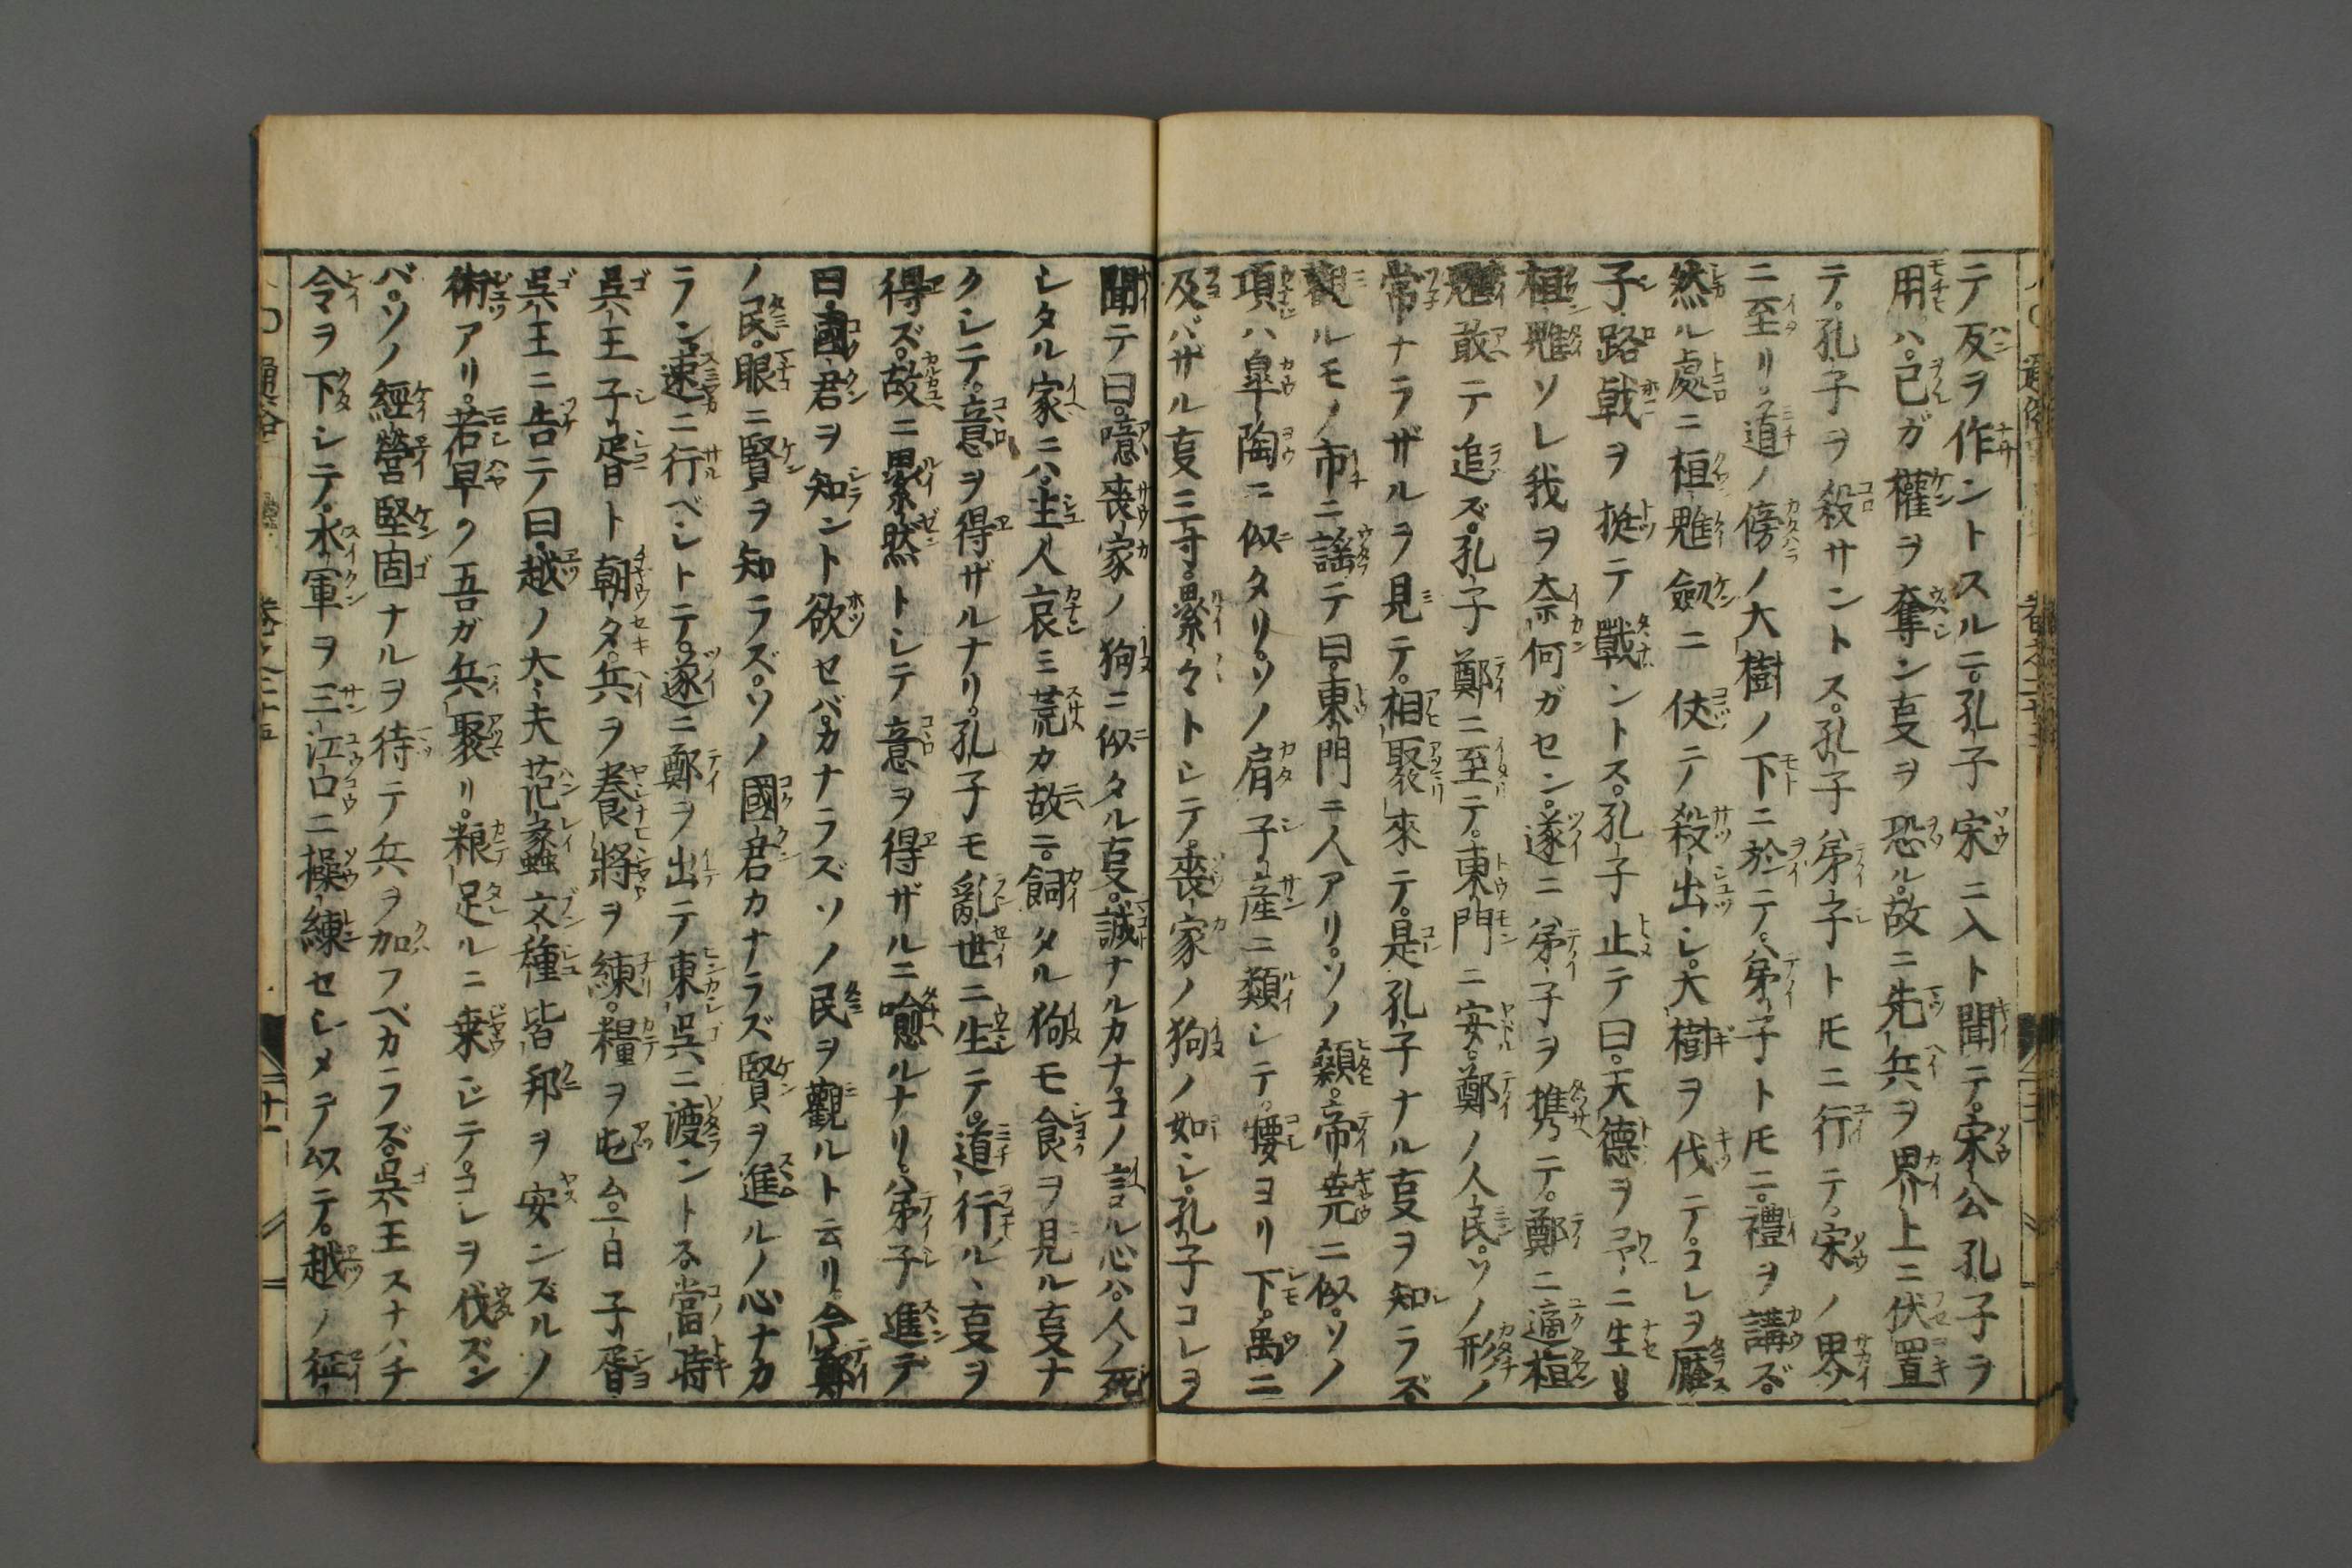 テ反ヲ作ントスルニ。孔子宋ニ入ト聞テ。宋公孔子ヲ
用ハ。己ガ權ヲ奪ン㕝ヲ恐ル。故ニ先兵ヲ界上ニ伏置
テ。孔子ヲ殺サントス。孔子ハ弟子トモニ行テ。宋ノ界
ニ至リ。道ノ傍ノ大樹ノ下ニ於テ。弟子トモニ。禮ヲ講ズ。
然ル處ニ桓魋劔ニ仗テ殺出シ。大樹ヲ伐テ。コレヲ壓
子路戟ヲ挺テ戰ントス。孔子止テ曰。天德ヲ予ニ生リ
桓魋ソレ我ヲ奈何ガセン。遂ニ弟子ヲ携テ。鄭ニ適桓
魋敢テ追ズ。孔子鄭ニ至テ。東門ニ安。鄭ノ人民。ソノ形ノ
常ナラザルヲ見テ。相聚來テ。是孔子ナル㕝ヲ知ラズ。
觀ルモノ市ニ謡テ曰。東門ニ人アリ。ソノ顙。帝堯ニ似。ソノ
項ハ皐陶ニ似タリ。ソノ肩子産ニ類シテ。腰ヨリ下。禹ニ
及バザル㕝三寸。累々トシテ。喪家ノ狗ノ如シ。孔子コレヲ
聞テ曰。噫喪家ノ狗ニ似タル㕝。誠ナルカナ。コノ言ル心ハ。人ノ死
シタル家ニハ。主人哀ミ荒カ故ニ。飼タル狗モ食ヲ見ル㕝ナ
クシテ。意ヲ得ザルナリ。孔子モ亂世ニ生テ。道行ル、㕝ヲ
得ズ。故ニ累然トシテ意ヲ得ザルニ喩ルナリ。弟子進デ
曰。國君ヲ知ント欲セバ。カナラズソノ民ヲ觀ルト云リ。今鄭
ノ民。眼ニ賢ヲ知ラズ。ソノ國君カナラズ賢ヲ進ルノ心ナカ
ラン。速ニ行ベシトテ。遂ニ鄭ヲ出テ東呉ニ渡ントス。當時
呉王子胥ト朝タ。兵ヲ養將ヲ練。糧ヲ屯
一日子胥
呉王ニ告テ曰。越ノ大夫范蠡文種皆邦ヲ安ンズルノ
術アリ。若早ク吾ガ兵聚リ。粮足ルニ乗ジテ。コレヲ伐ズン
バ。ソノ經營堅固ナルヲ待テ兵ヲ加フベカラズ。呉王スナハチ
令ヲ下シテ。水軍ヲ三江口ニ操練セシメテ以テ。越ノ征